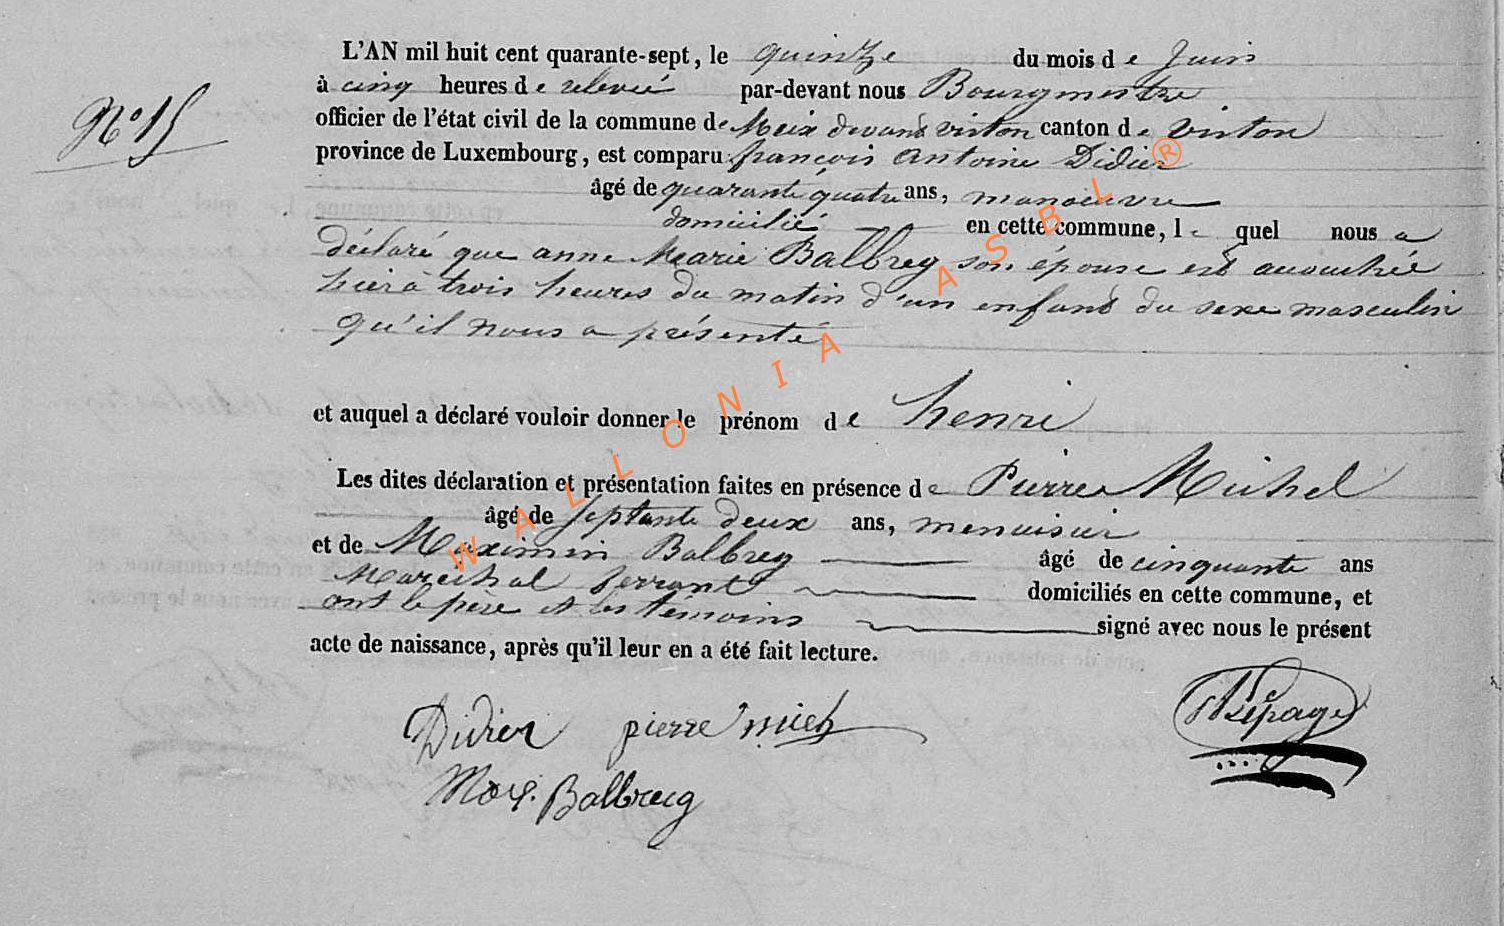 L'AN mil huit cent quarante-sept, le quinze du mois de Juin
à cinq heures de relevée par-devant nous Bourgmestre
N° 15
officier de l'état civil de la commune de Meix devant virton canton de virton
province de Luxembourg, est comparu françois Antoine Didier
âgé de quarante quatre ans, manoeuvre
domicilié en cette commune, lequel nous a
déclaré que anne Marie Balbrey son épouse est accouchée
hier à trois heures du matin d'un enfant du sexe masculin
qu'il nous a présenté
et auquel a déclaré vouloir donner le prénom de henri
Les dites déclaration et présentation faites en présence de Pierre Michel
âgé de septante deux ans, menuisier
et de Maximin Balbrey âgé de cinquante ans
Maréchal ferrant domiciliés en cette commune, et
ont le père et les témoins signé avec nous le présent
acte de naissance, après qu'il leur en a été fait lecture.
Didier pierre
Max. Balbreug
WALLONIA ASBL ®